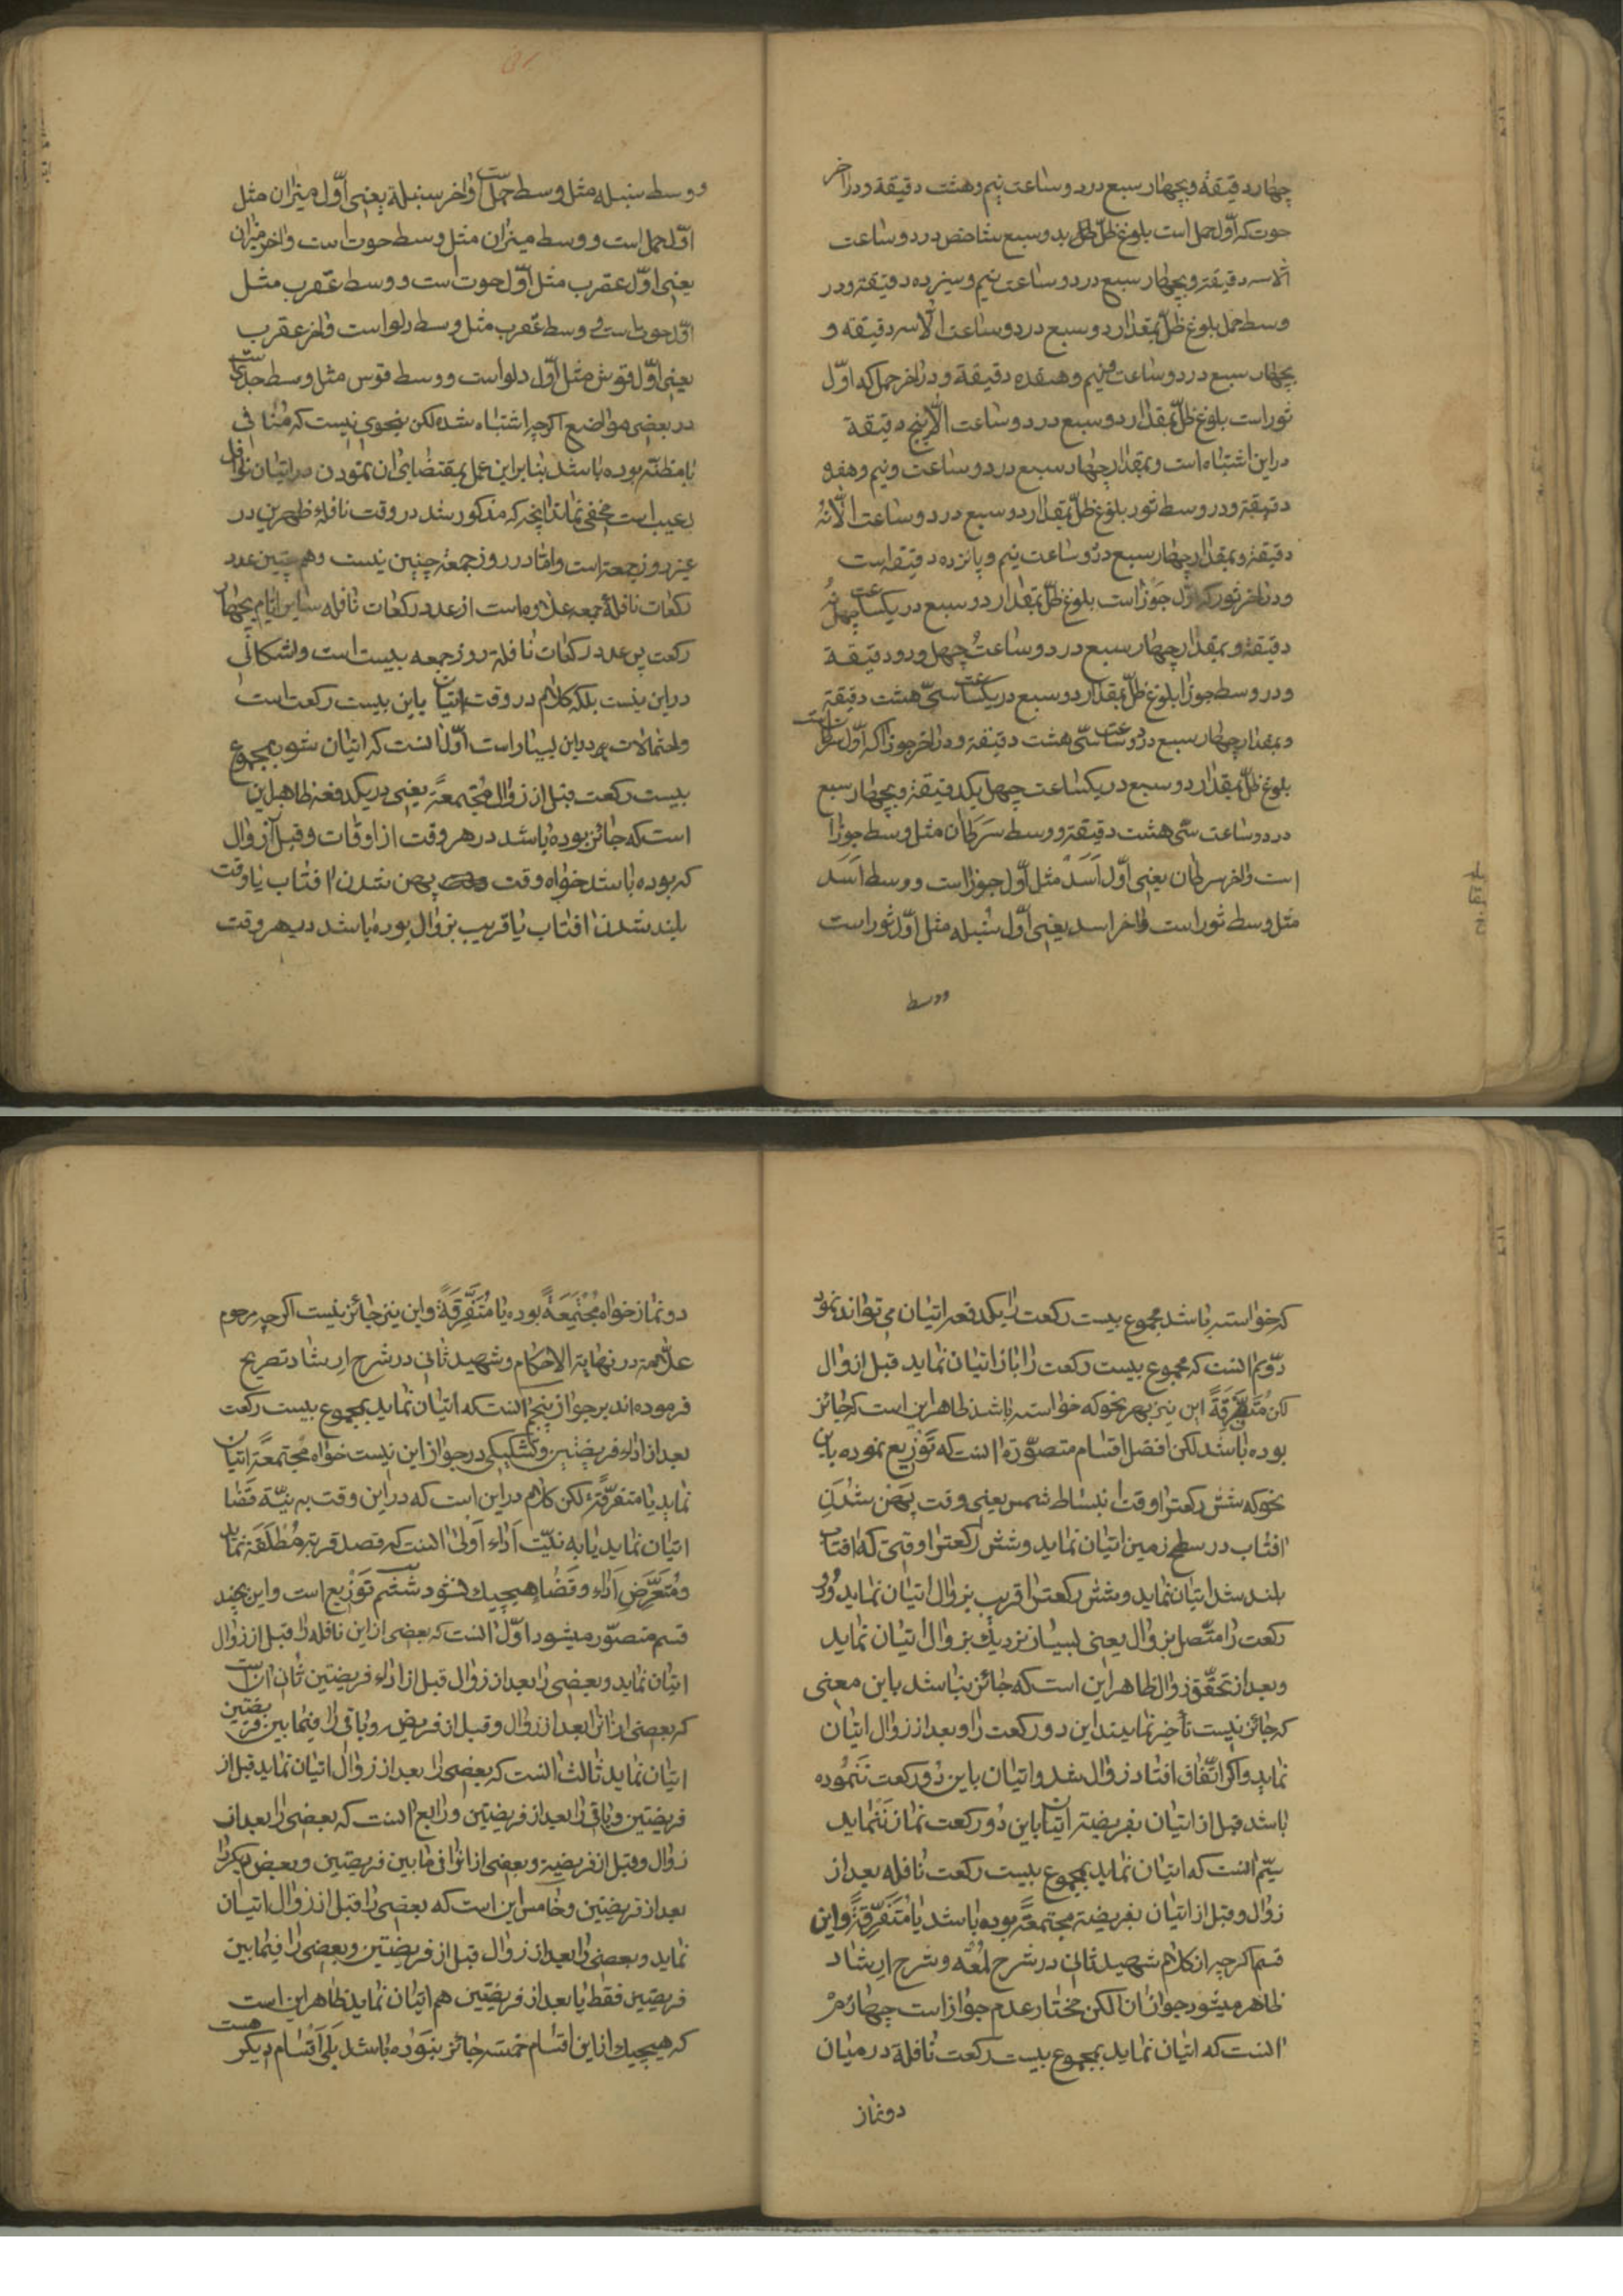 چهار دقیقه و بچهار سبع در دو ساعت نیم و هشت دقیقه و در آخر
حوت که اوّل حمل است بلوغ ظلّ بدو سبع شاخص در دو ساعت
الّا سه دقیقه و بچهار سبع در دو ساعت نیم و سیزده دقیقه و در
وسط حمل بلوغ ظلّ بمقدار دو سبع در دو ساعت الّا سه دقیقه و
بچهار سبع در دو ساعت و نیم و هفده دقیقه و در آخر حمل که اوّل
ثور است بلوغ ظلّ بمقدار دو سبع در دو ساعت الّا پنج دقیقة
در این اشتباه است و بمقدار چهار سبع در دو ساعت و نیم و هفده
دقیقة و در وسط ثور بلوغ ظلّ بمقدار دو سبع در دو ساعت الّا نُه
دقیقة و بمقدار چهار سبع در دو ساعت نیم و پانزده دقیقه است
و در آخر ثور که اوّل جوزا است بلوغ ظلّ بمقدار دو سبع در یکساعت چهل نُه
دقیقة و بمقدار چهار سبع در دو ساعت چهل و دو دقیقة
و در وسط جوزا بلوغ ظلّ بمقدار دو سبع در یکساعت سی هشت دقیقة
و بمقدار چهار سبع در دو ساعت سی هشت دقیقة و در آخر جوزا که اوّل سرطان است
بلوغ ظلّ بمقدار دو سبع در یکساعت چهل یکدقیقة و بچهار سبع
در دو ساعت سی هشت دقیقة و وسط سَرَطان مثل وسط جوزا
است و آخر سرطان یعنی اوّل اَسَد مثل اوّل جوزا است و وسط اَسَد
مثل وسط ثور است و آخر اسد یعنی اوّل سُنبله مثل اوّل ثور است
و وسط
و وسط سنبله مثل وسط حمل است و آخر سنبلة یعنی اوّل میزان مثل
اوّل حمل است و وسط میزان مثل وسط حوت است و آخر میزان
یعنی اوّل عقرب مثل اوّل حوت است و وسط عقرب مثل
اوّل حوت است و وسط عقرب مثل وسط دلو است و آخر عقرب
یعنی اوّل قوس مثل اوّل دلو است و وسط قوس مثل وسط جدی است
در بعضی مواضع اگرچه اشتباه شده لکن بنحوی نیست که منافی
با مظنّه بوده باشد بنابراین عمل بمقتضای ان نمودن در اتیان نوافل
بیعیب است مخفی نماند آنچه که مذکور شد در وقت نافلهٔ ظهرین در
غیر روز جمعه است و امّا در روز جمعه چنین نیست و همچنین عدد
رکعات نافلهٔ جمعه علاوه است از عدد رکعات نافله سایر ایّام بچهار
رکعت پس عدد رکعات نافلهٔ روز جمعه بیست است و اشکالی
در این نیست بلکه کلام در وقت اتیان باین بیست رکعت است
و احتمالات در این بسیار است اوّل آنست که اتیان شود بمجموع
بیست رکعت قبل از زوال مجتمعةً یعنی در یکدفعه ظاهر این
است که جائز بوده باشد در هر وقت از اوقات و قبل از زوال
که بوده باشد خواه وقت پهن شدن افتاب یا وقت
بلند شدن افتاب یا قریب بزوال بوده باشد در هر وقت
که خواسته باشد مجموع بیست رکعت را یکدفعه اتیان می تواند نمود
دوّیم انست که مجموع بیست رکعت را باز اتیان نماید قبل از زوال
لکن مُتَفَرِّقَةً این نیز بهر نحو که خواسته باشد ظاهر این است که جائز
بوده باشد لکن افضل اقسام متصوّرة انست که تَوْزیع نموده باین
نحو که شش رکعترا وقت انبساط شمس یعنی وقت پَهن شُدَنِ
افتاب در سطح زمین اتیان نماید و شش رکعترا وقتی که افتاب
بلند شد اتیان نماید و شش رکعترا قریب بزوال اتیان نماید و دو
رکعت را متّصل بزوال یعنی بسیار نزدیک بزوال اتیان نماید
و بعد از تحقّق زوال ظاهر این است که جائز نباشد باین معنی
که جائز نیست تأخیر نمایند این دو رکعت را و بعد از زوال اتیان
نماید و اگر اتّفاق افتاد زوال شد و اتیان باین دو رکعت نَنموده
باشد قبل از اتیان بفریضة اتیان باین دو رکعت نماز نَنماید
سیّم انست که اتیان نماید بمجموع بیست رکعت نافله بعد از
زوال و قبل از اتیان بفریضة مجتمعةً بوده باشد یا مُتَفَرِّقَةً و این
قسم اگرچه از کلام شهید ثانی در شرح لُمعَه و شرح اِرشاد
ظاهر میشود جواز ان لکن مختار عدم جواز است چهارُم
انست که اتیان نماید بمجموع بیست رکعت نافله در میان
دو نماز
دو نماز خواه مُجْتَمِعَةً بوده یا مُتَفَرِّقَةً و این نیز جائز نیست اگرچه مرحوم
علّامه در نهایة الاحکام و شهید ثانی در شرح ارشاد تصریح
فرموده اند بر جواز پنجم انست که اتیان نماید بمجموع بیست رکعت
بعد از اداء فریضتین و تشکیکی در جواز این نیست خواه مجتمعةً اتیان
نماید یا متفرّقةً لکن کلام در این است که در این وقت به نیّة قضا
اتیان نماید یا به نیّت اَداء اَولی انست که قصد قربة مُطلَقَة نماید
و مُتَعَرِّضِ اَداء و قَضاء هیچیک نشود ششم تَوْزیع است و این بچند
قسم متصوّر میشود اوّل انست که بعضی از این نافله را قبل از زوال
اتیان نماید و بعضی را بعد از زوال قبل از اداء فریضتین ثانی آنست
که بعضی از انرا بعد از زوال و قبل از فریضه و باقی را فیما بین فریضتین
اتیان نماید ثالث انست که بعضی را بعد از زوال اتیان نماید قبل از
فریضتین و باقی را بعد از فریضتین و رابع انست که بعضی را بعد از
زوال و قبل از فریضة و بعضی از انرا فی ما بین فریضتین و بعض دیگر را
بعد از فریضتین و خامس این است که بعضی را قبل از زوال اتیان
نماید و بعضی را بعد از زوال قبل از فریضتین و بعضی را فیما بین
فریضتین فقط یا بعد از فریضتین هم اتیان نماید ظاهر این است
که هیچیک از این اقسام خمسه جائز نبوده باشد بلی اَقسام دیگر هست